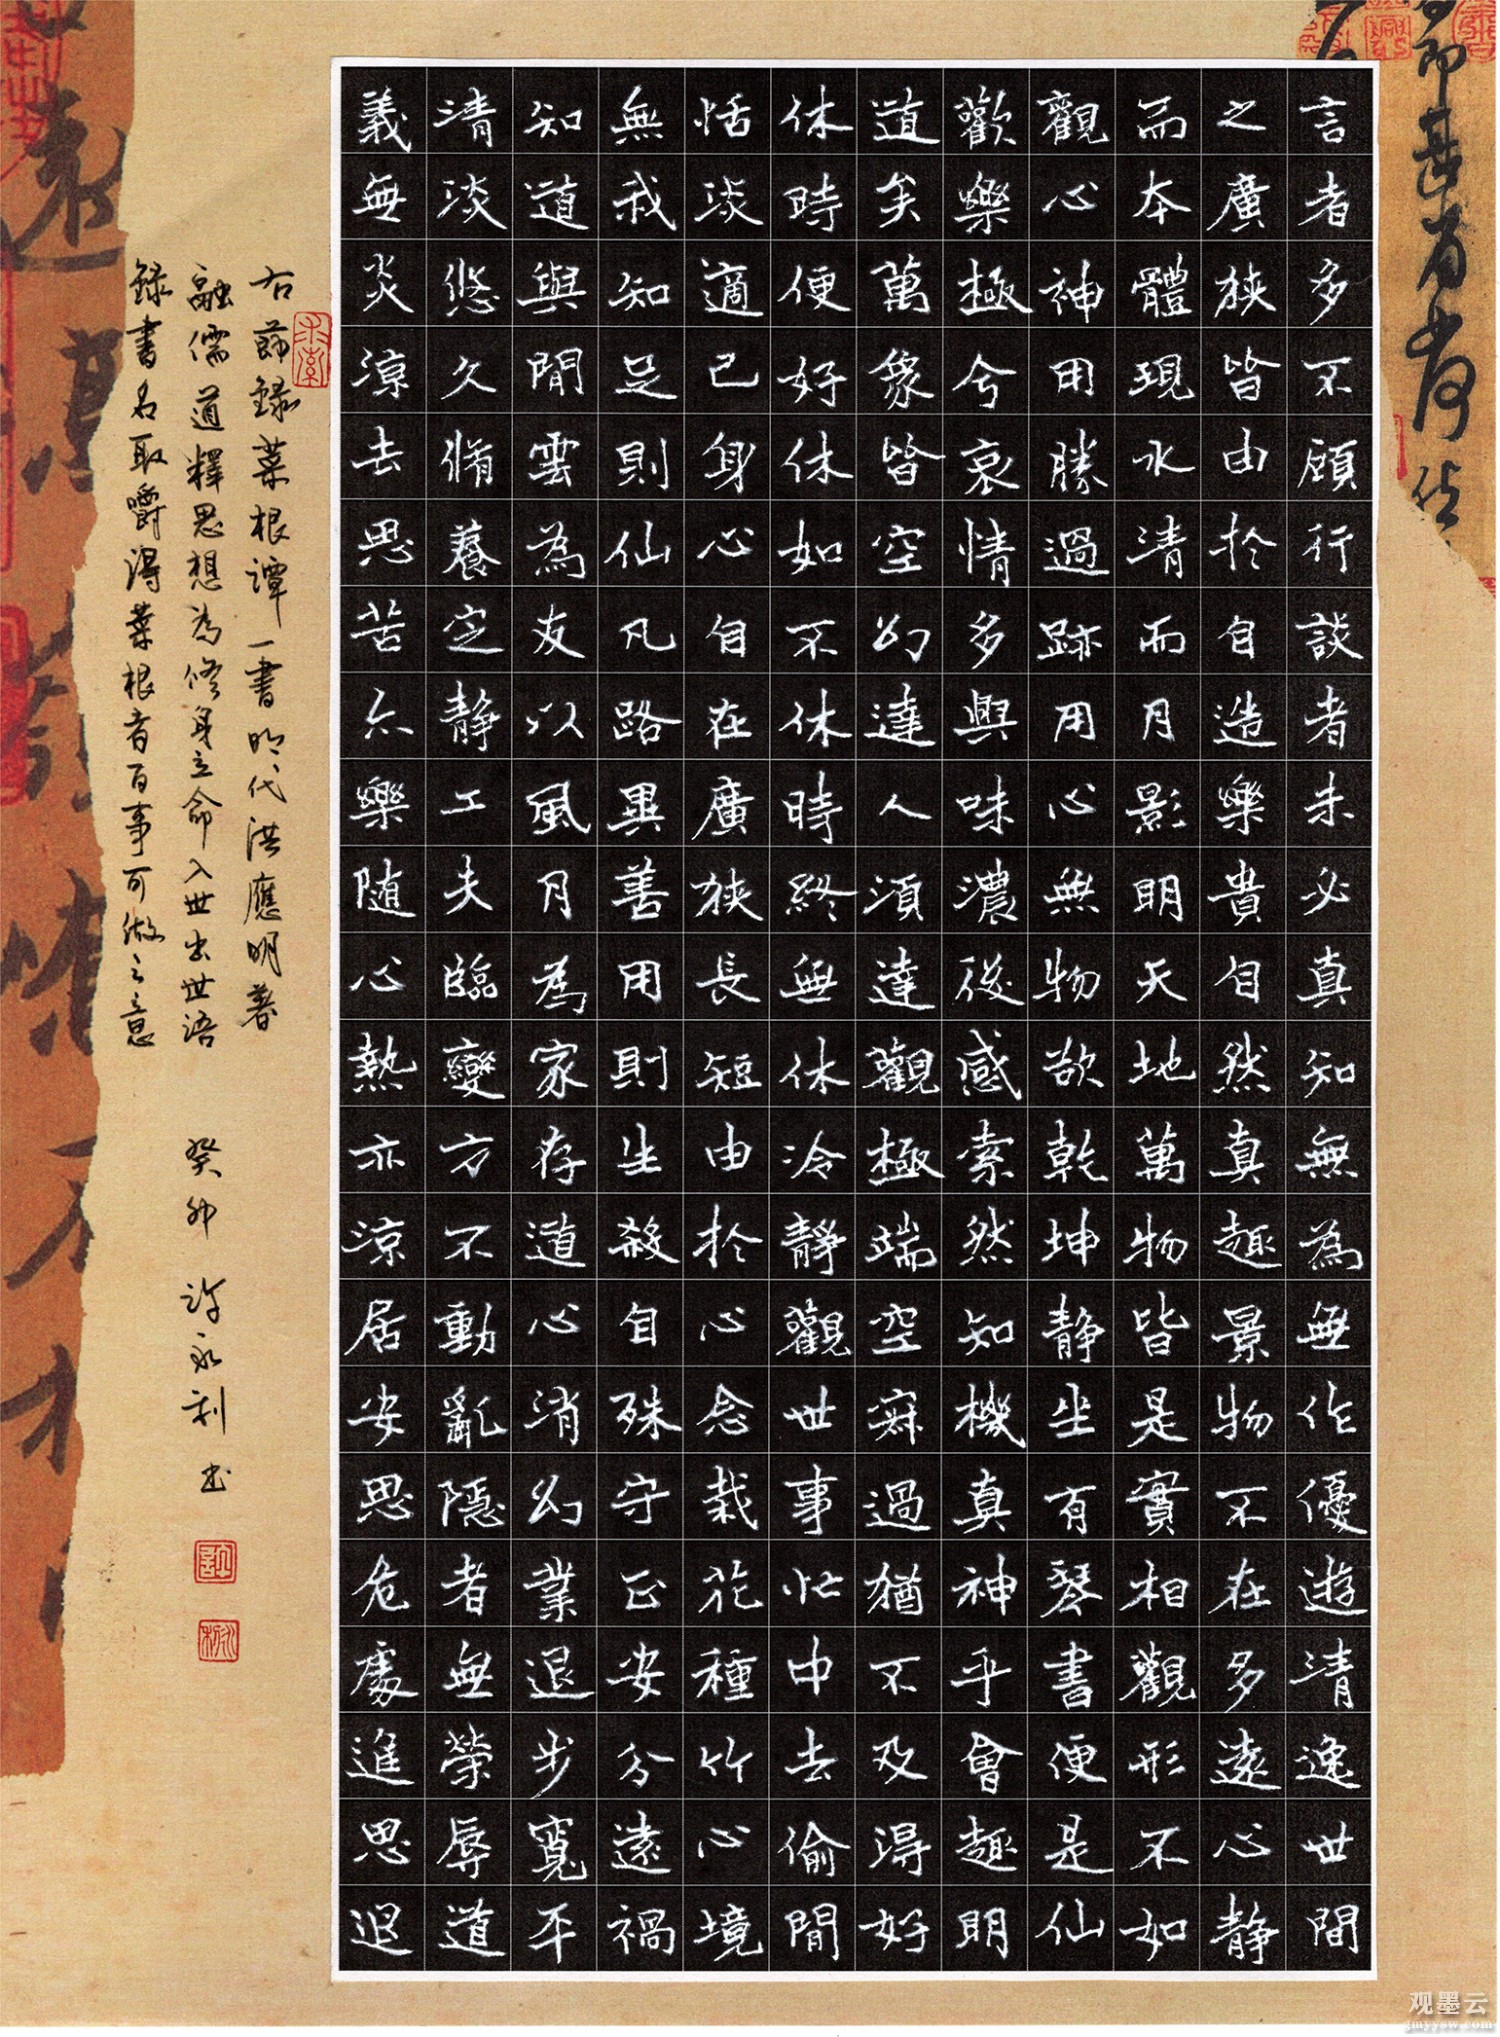 言者多不顧行談者未必真知無為無作優遊清逸世間
之廣狹皆由於自造樂貴自然真趣景物不在多遠心靜
而本體現水清而月影明天地萬物皆是實相觀形不如
觀心神用勝過跡用心無物欲乾坤靜坐有琴書便是仙
歡樂極兮哀情多興味濃後感索然知機真神乎會趣明
道矣萬象皆空幻達人須達觀極端空寂過猶不及得好
休時便好休如不休時終無休冷靜觀世事忙中去偷閒
恬淡適己身心自在廣狹長短由於心念栽花種竹心境
無我知足則仙凡路異善用則生殺自殊守正安分遠禍
知道與閒雲為友以風月為家存道心消幻業退步寬平
清淡悠久脩養定靜工夫臨變方不動亂隱者無榮辱道
義無炎涼去思苦亦樂隨心熱亦涼居安思危處進思退
右節錄菜根譚一書明代洪應明著
融儒道釋思想為修身立命入世出世語
錄書名取嚼得菜根者百事可做之意
癸卯 許永利書
观墨云
gmyysw.com